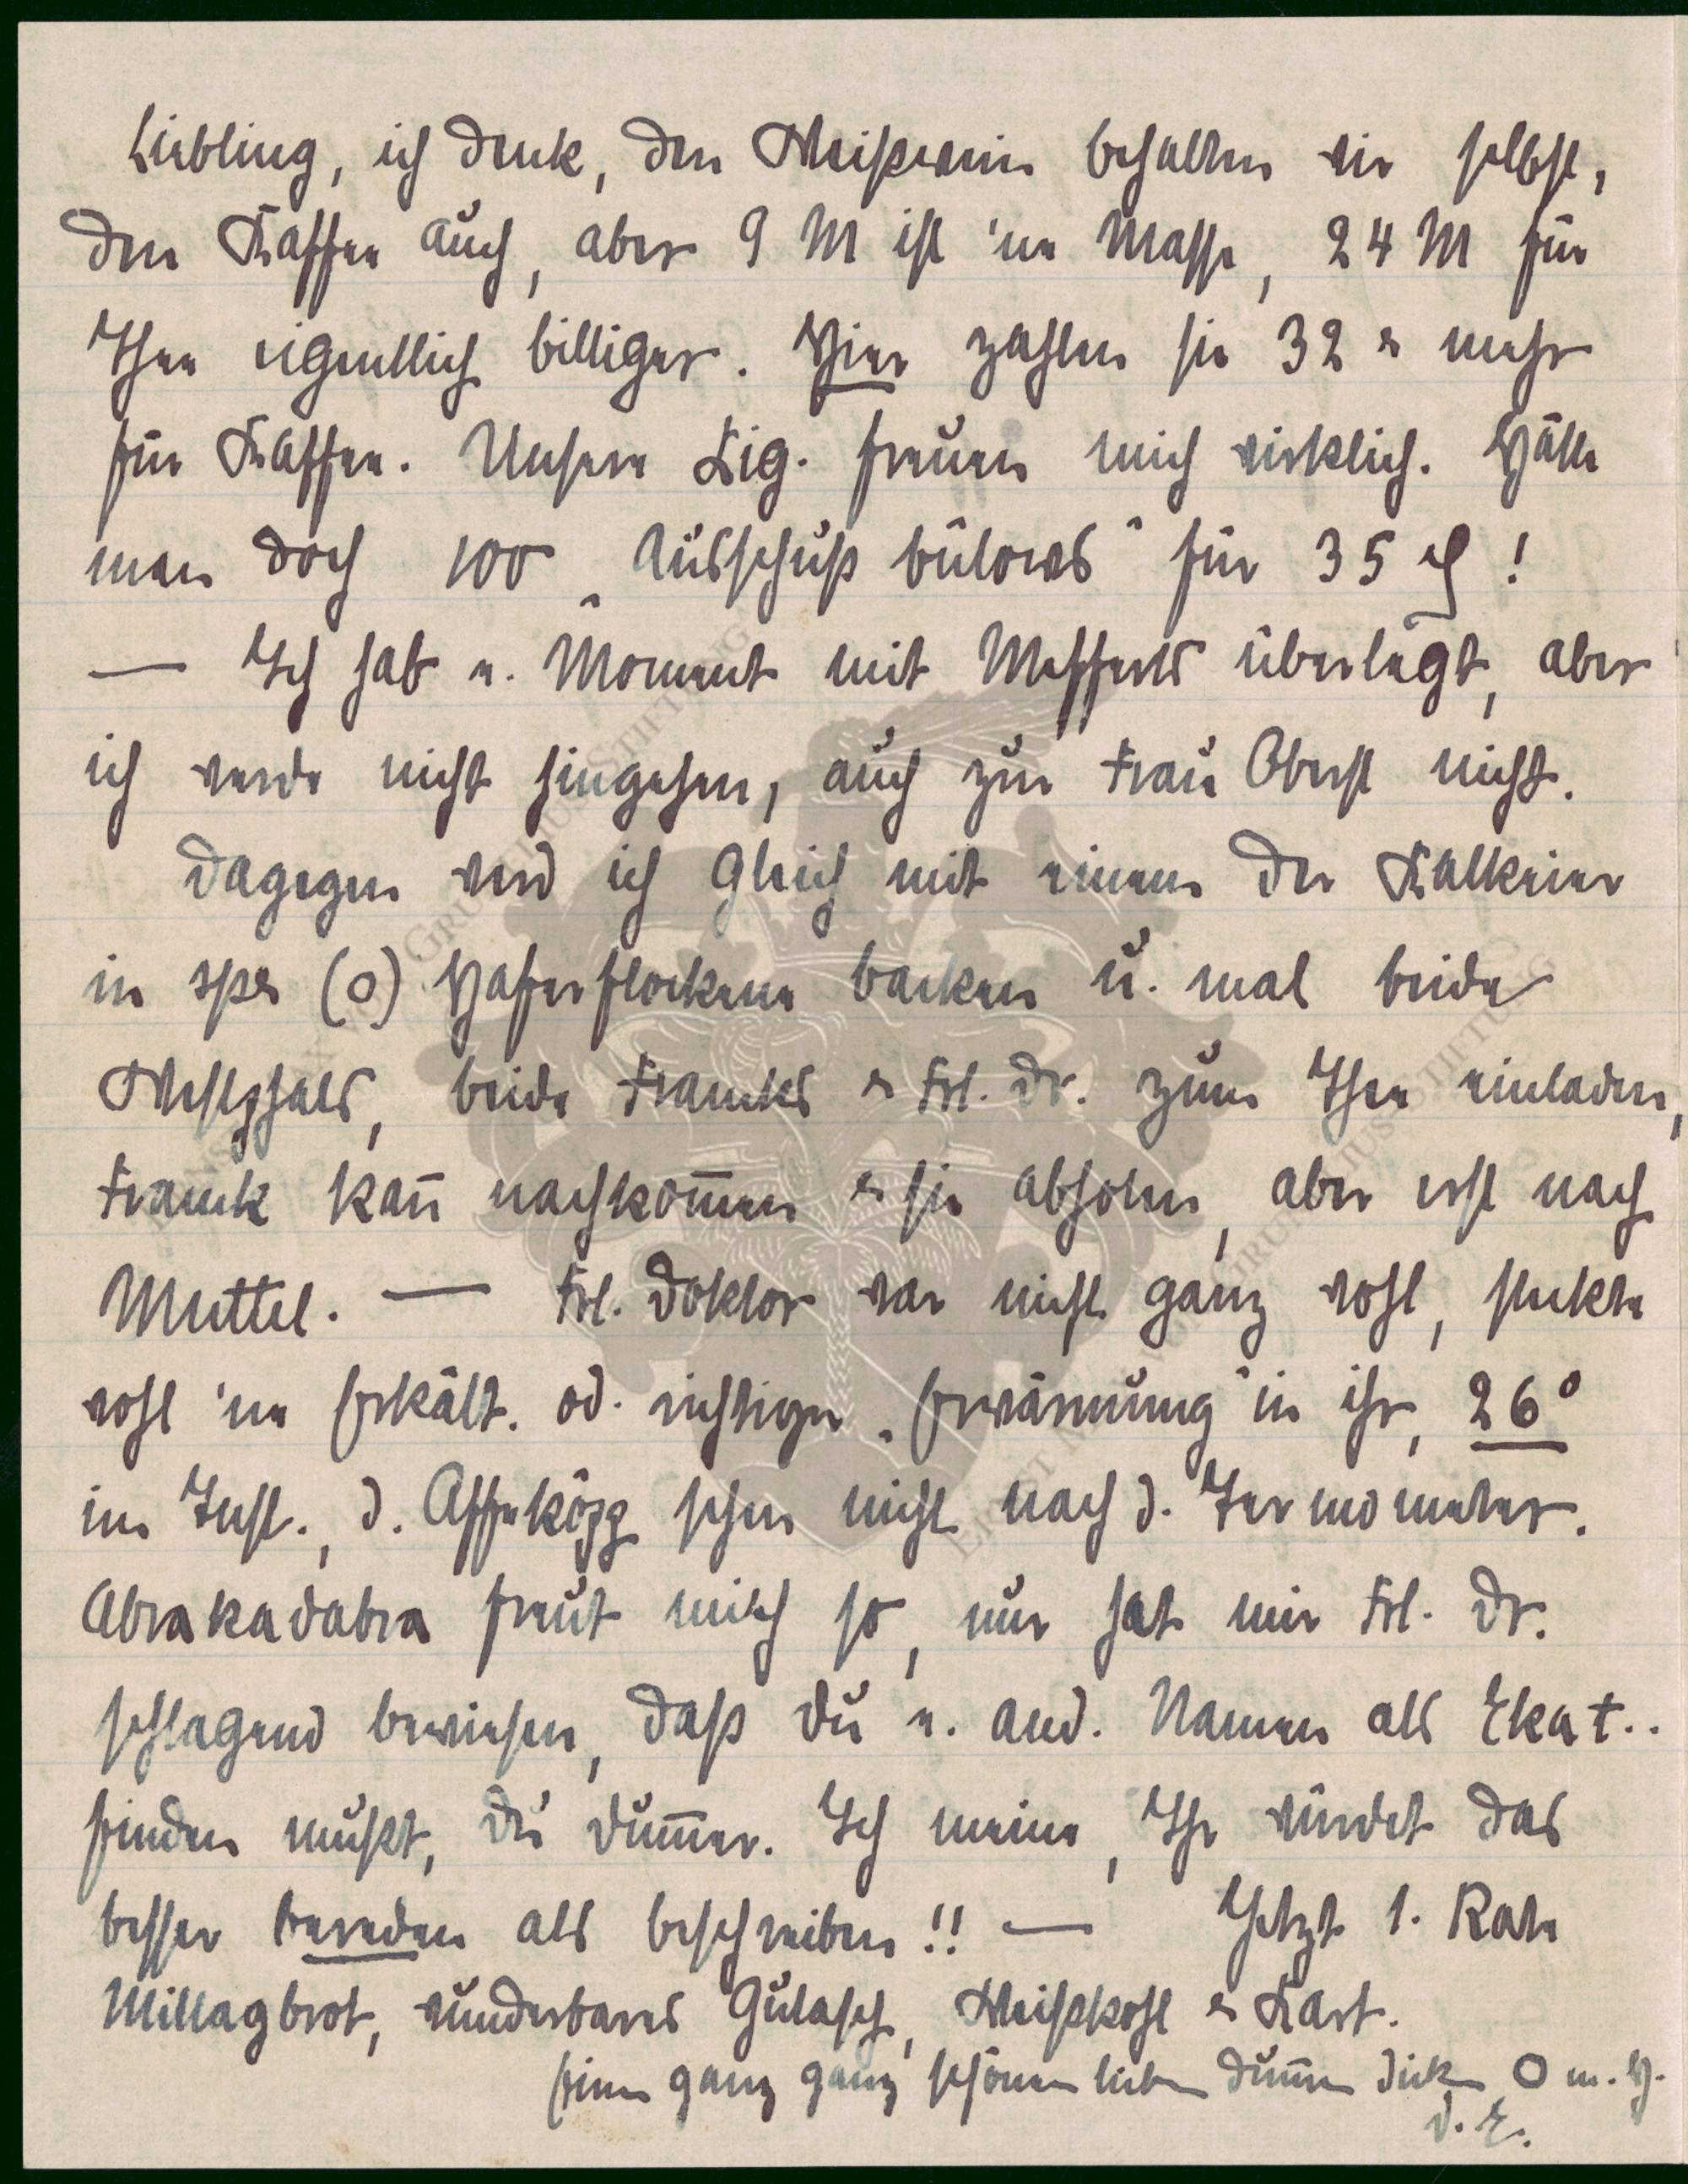 Liebling, ich denk, den Weißwein behalten wir selbst,
den Kaffee auch, aber 9 M ist 'ne Masse, 24 M für
Thee eigentlich billiger. Hier zahlen sie 32 & mehr
für Kaffee. Unsere Zig. freuen mich wirklich. Hätte
man doch 100 „Ausschuss bülows“ für 35 ₰!
— Ich hab e. Moment mit Mefferts überlegt, aber
ich werde nicht hingehen, auch zur Frau Oberst nicht.
Dagegen werd ich gleich mit einem der
in spe (o) Haferflocken backen u. mal beide
Westphals, beide Francks & Frl. Dr. zum Thee einladen,
Franck kan̅ nachkom̅en & sie abholen, aber erst nach
Muttel. — Frl. Doktor war nicht ganz wohl, steckte
wohl 'ne Erkält. od. richtiger „Erwärmung“ in ihr, 26°
im Inst., d. Affeköpp sehen nicht nach d. Termometer.
Abrakadabra freut mich so, nur hat mir Frl. Dr.
schlagend bewiesen, daß Du e. and. Namen als Ekat..
finden mußt, Du Dum̅er. Ich meine, Ihr würdet das
besser bereden als beschreiben!! — Jetzt 1. Rate
Mittagbrot, wunderbares Gulasch, Weißkohl & Kart.
Einen ganz ganz schönen lieben dum̅en dicken O m. H.
D. E.
GRU IUS STIFTUNG